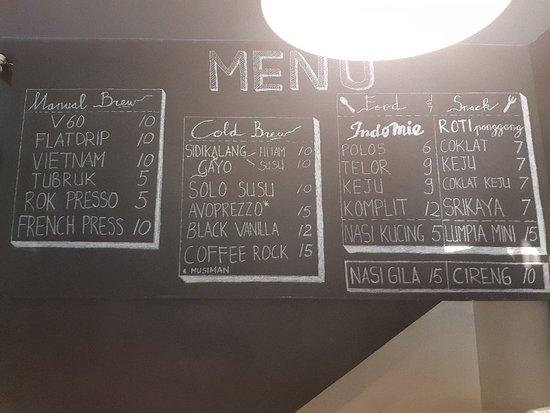 MENU
Manual Brew
V60 10
FLATDRIP 10
VIETNAM 10
TUBRUK 5
ROK PRESSO 5
FRENCH PRESS 10
Cold Brew
SIDIKALANG HITAM 10
GAYO SUSU 10
SOLO SUSU 10
AVOPREZZO* 15
BLACK VANILLA 12
COFFEE ROCK 15
* MUSIMAN
Food & Snack
Indomie
POLOS 6
TELOR 9
KEJU 9
KOMPLIT 12
NASI KUCING 5
ROTI panggang
COKLAT 7
KEJU 7
COKLAT KEJU 7
SRIKAYA 7
LUMPIA MINI 15
NASI GILA 15
CIRENG 10